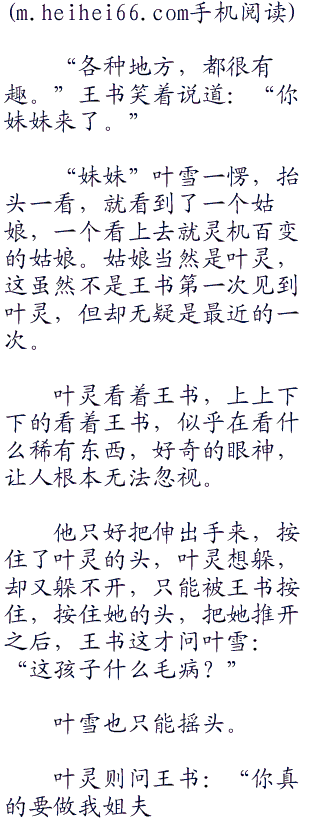 (m.heihei66.com手机阅读)
“各种地方，都很有
趣。”王书笑着说道：“你
妹妹来了。”
“妹妹”叶雪一愣，抬
头一看，就看到了一个姑
娘，一个看上去就灵机百变
的姑娘。姑娘当然是叶灵，
这虽然不是王书第一次见到
叶灵，但却无疑是最近的一
次。
叶灵看着王书，上上下
下的看着王书，似乎在看什
么稀有东西，好奇的眼神，
让人根本无法忽视。
他只好把伸出手来，按
住了叶灵的头，叶灵想躲，
却又躲不开，只能被王书按
住，按住她的头，把她推开
之后，王书这才问叶雪：
“这孩子什么毛病？”
叶雪也只能摇头。
叶灵则问王书：“你真
的要做我姐夫